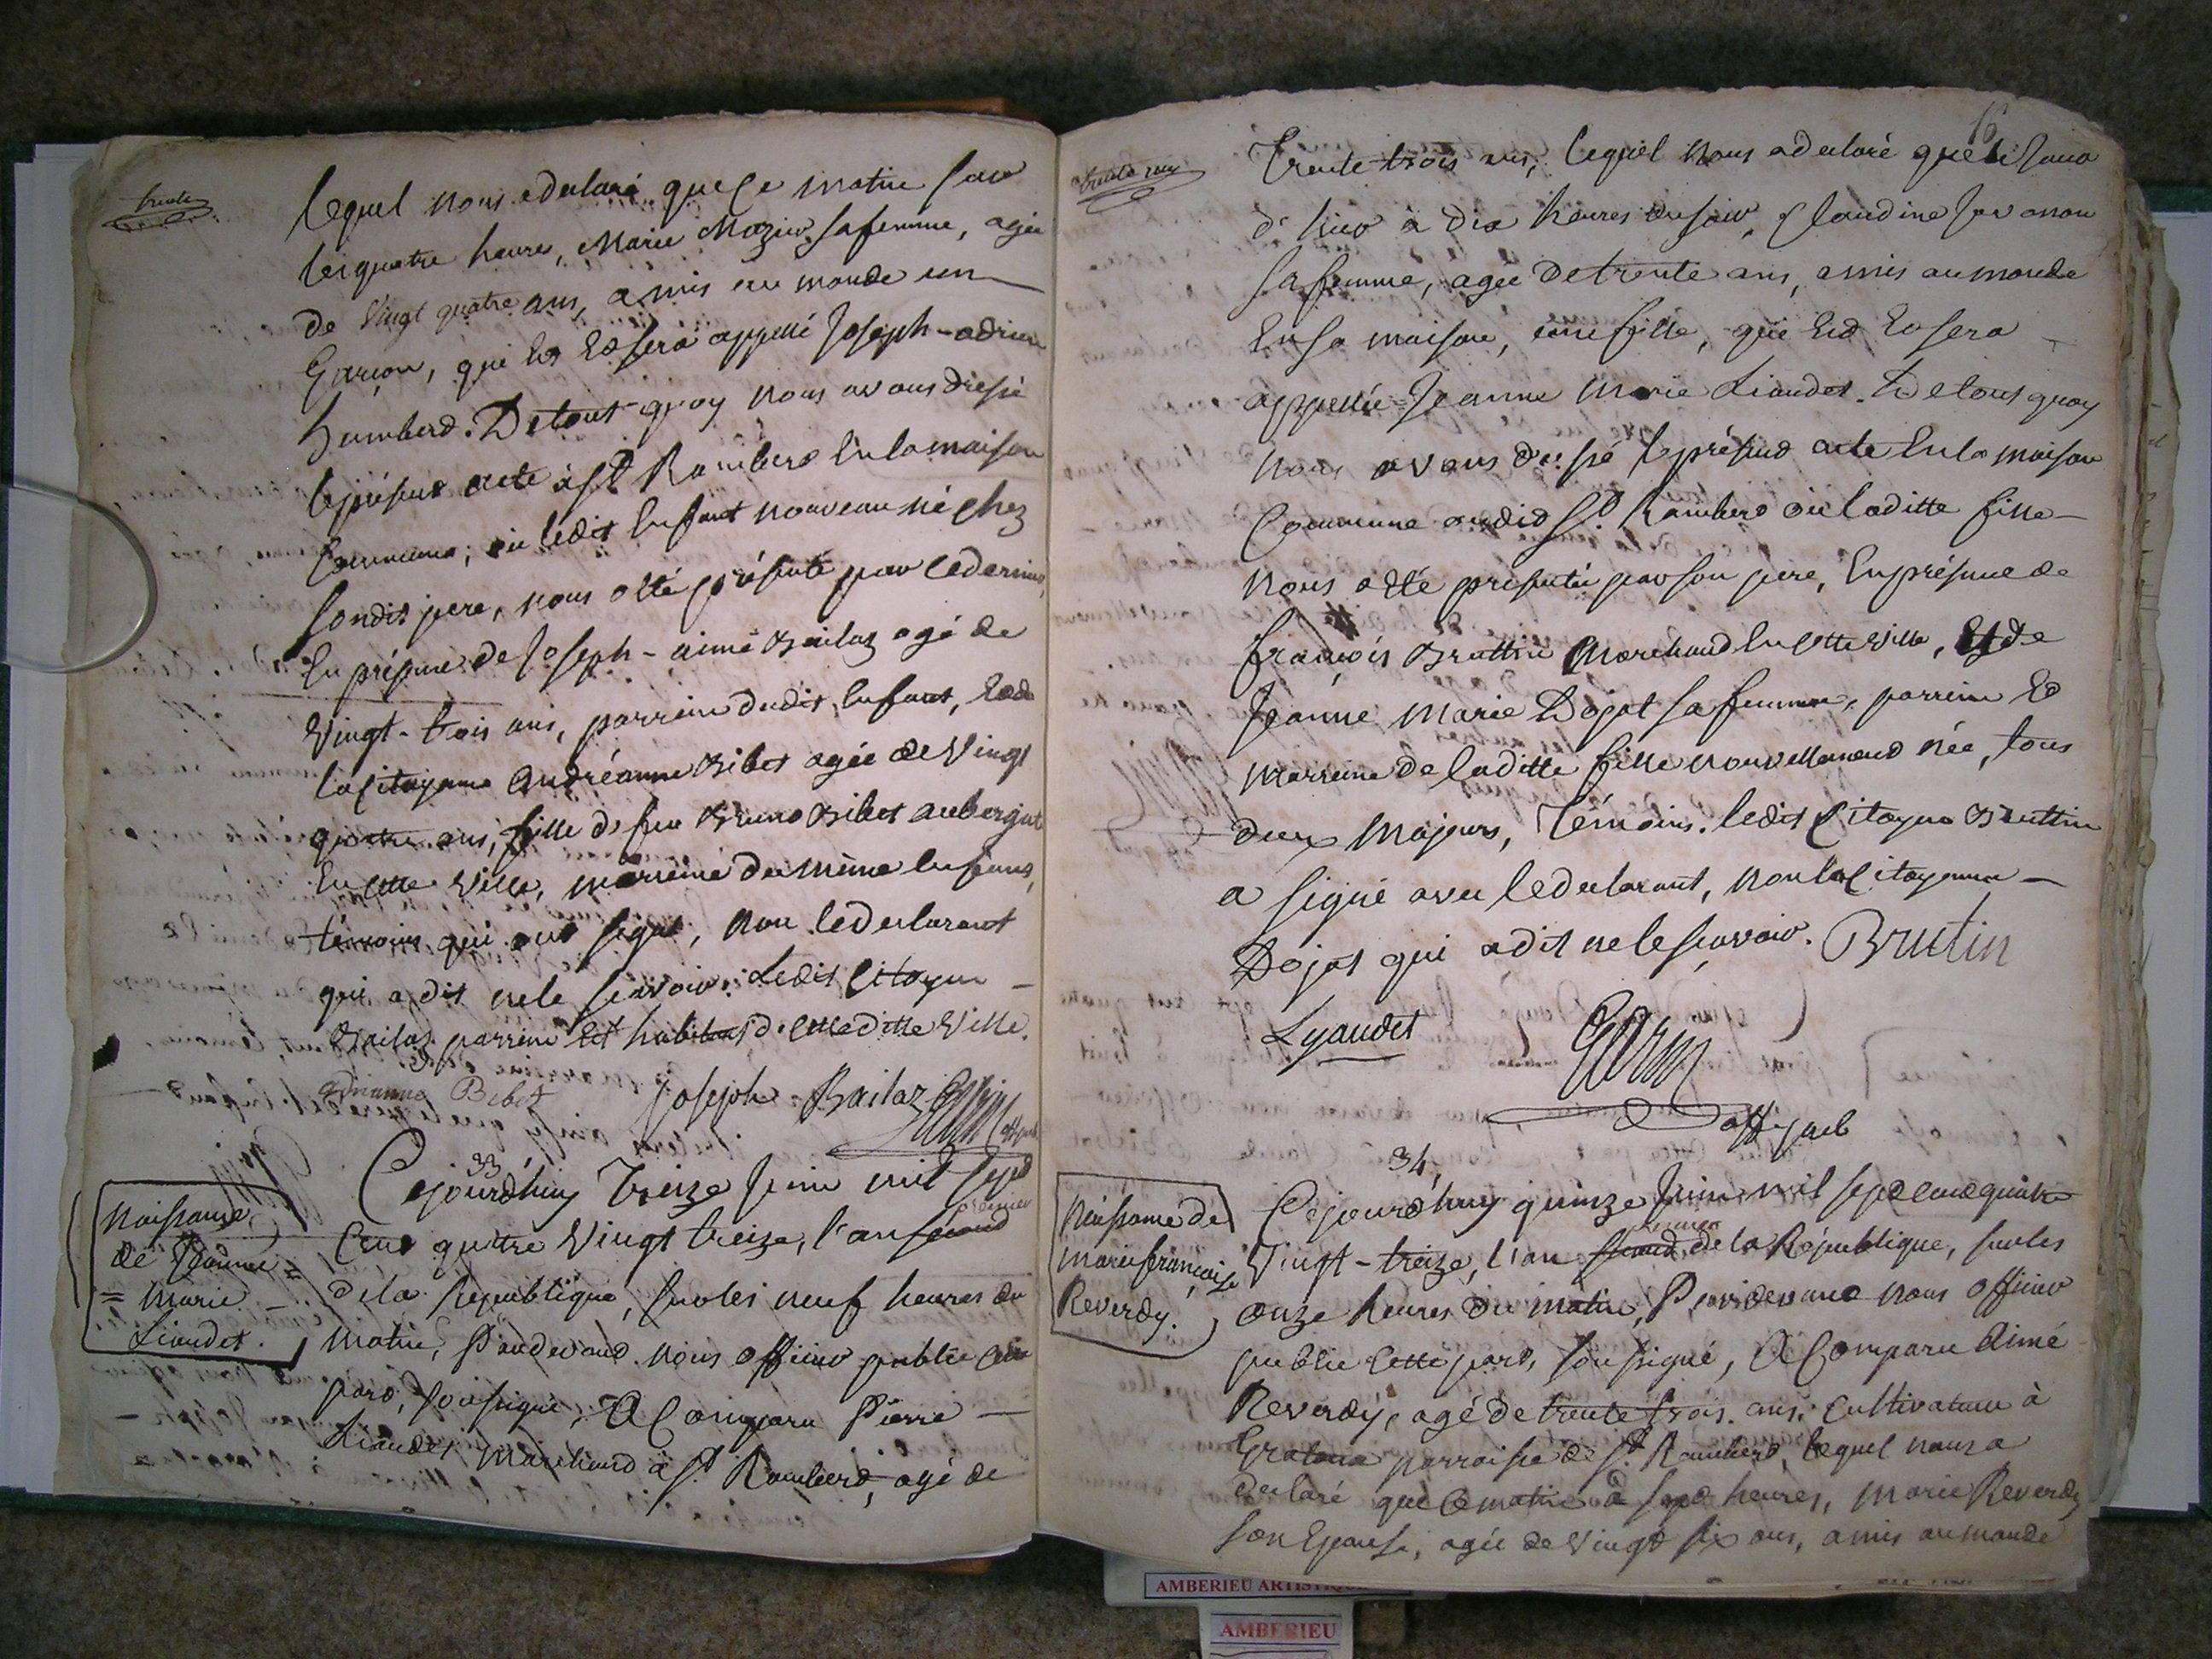 trente
lequel nous a declaré que ce matin sur
les quatre heures, Marie Mozin sa femme, agée
de vingt quatre ans, a mis au monde un
Garçon, qui est Et sera appellé Joseph-adrien
humberd. De tout quoy nous avons dressé
le présent acte à St Rambert En la maison
Commune, où ledit Enfant nouveau né chez
sondit pere, nous a Eté présenté par ce dernier,
En présence de Joseph-aimé Bailaz agé de
Vingt-trois ans, parrein dudit Enfant, Et de
la Citoyenne Andréanne Bibet agée de Vingt
quatre ans, fille de feu Bruno Bibet aubergiste
En cette Ville, marreine du même Enfant,
témoins qui ont signé, non le declarant
qui a dit ne le sçavoir. Ledit Citoyen
Bailaz parrein Est habitant de cette ditte Ville.
adrianne Bibet Joseph Bailaz
off. publ
33
Cejourdhuy Treize Juin mil sept
Cent quatre Vingt treize, l'an second premier
de la République, sur les neuf heures du
matin, Pardevant nous officier public
pard, soussigné, A Comparu Pierre
Liaudet Marchand à St Rambert, agé de
Naissance
de Jeanne =
= Marie
Liaudet.
16
trente un
Trente trois ans, lequel nous a declaré que le jour
d'hier à dix heures du soir, Claudine Javanon
sa femme, agée de trente ans, a mis au monde
En sa maison, une fille, qui Est Et sera
appellée Jeanne Marie Liaudet. De tout quoy
nous avons dressé le présent acte En la maison
Commune audit St Rambert où laditte fille
nous a Eté presentée par son pere, En présence de
françois Bruttin Marchand En cette Ville, Et de
Jeanne Marie Dojat sa femme, parrein Et
marreine de laditte fille nouvellement née, tous
deux Majeurs, Témoins. ledit Citoyen Bruttin
a signé avec le declarant, non la Citoyenne
Dojat qui a dit ne le sçavoir. Brutin
Lyaudet
off. publ
34
Cejourdhuy quinze Juin mil sept cent quatre
Vingt-treize, l'an second premier de la République, sur les
onze heures du matin, Pardevant nous officier
public cette part, soussigné, A Comparu Aimé
Reverdy, agé de trente trois ans, Cultivateur à
parroisse de St Rambert, lequel nous a
declaré que ce matin à sept heures, Marie Reverdy
son Epouse, agée de Vingt six ans, a mis au monde
Naissance de
marie françoise
Reverdy.
AMBERIEU ARTISTIQUE
AMBERIEU